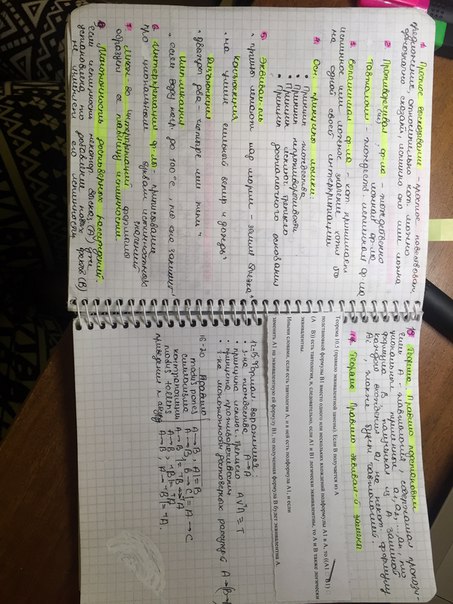 1. Простое высказывание – простое повествоват.
предложение, относительно кот. можно
однозначно сказать, истинно оно или ложно
2. Противоречивая ф-ла – тождественно
ложная ф-ла
Тавтология – тождеств. истинная ф-ла
3. Выполнимая ф-ла – кот. принимает
истинное или ложное значение хотя бы
на одной своей интерпретации
4. Осн. принципы логики:
• Принцип тождества
• Принцип непротиворечивости
• Принцип исключ. третьего
• Принцип достаточного основания
5. Эквивал-ть
Конъюнкция
"на улице сильный ветер и дождь"
Дизъюнкция
"дважды два – четыре или пять"
Импликация
"если воду нагр. до 100°C, то она закипит"
6. Интерпретация ф-лы – приписывание
пропозициональным буквам истинностных
значений
7. Множ-во интерпретаций формулы
образуют её таблицу истинности.
8. Монотонность достоверных рассуждений.
"если истинность некотор. высказ. (A) уже
установлена, то добавление новых фактов (B)
не изменяет его истинность
Теорема. Правило подстановки
A – тавтология, содержащая
Теорема Правило эквивал-й замены
Теорема 10.5 (правило эквивалентной замены). Если B получается из A
подстановкой формулы B1 вместо одного или нескольких вхождений подформулы A1 в A, то ((A1 B1)
(A B)) есть тавтология, и, следовательно, если A1 и B1 логически эквивалентны, то A и B также логически
эквивалентны.
Иными словами, если есть тавтология A, и в ней есть подформула A1, и если
заменить A1 на эквивалентную ей формулу B1, то полученная формула B будет эквивалентна A.
12-15 Формал. выражения
• з-на тождества A→A
• принципа исключ. третьего
• принципа противоречивости
• з-на монотонности достоверных рассужд-й
16-20 Правило
modus ponens A→B, A |= B
силлогизма A→B, B→C |= A→C
контрапозиции A→B |= ¬B→¬A
modus tollens A→B, ¬B |= ¬A
приведения к абсурду A→B, A→¬B |= ¬A.